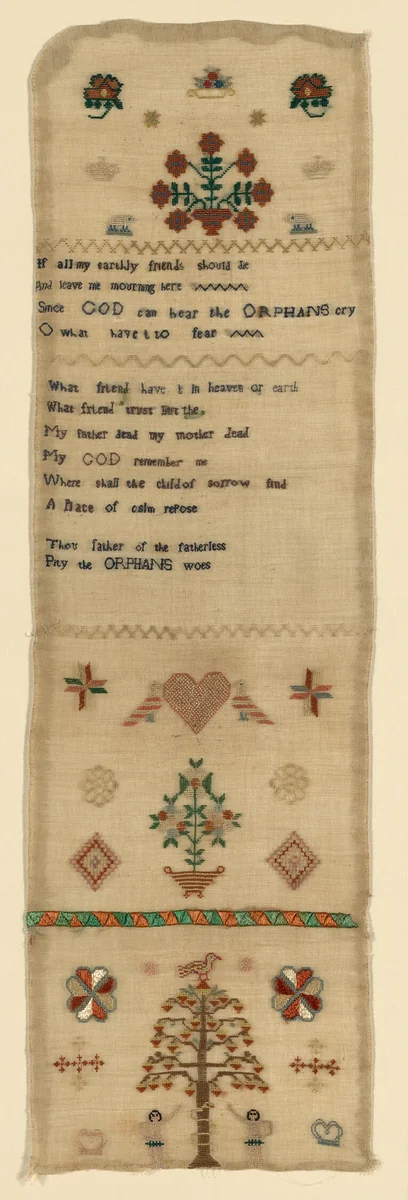 If all my earthly friends should die
And leave me mourning here
Since GOD can hear the ORPHANS cry
O what have I to fear
What friend have I in heaven or earth
What friend trust but the
My father dead my mother dead
My GOD remember me
Where shall the child of sorrow find
A Place of calm repose
Thou father of the fatherless
Pity the ORPHANS woes